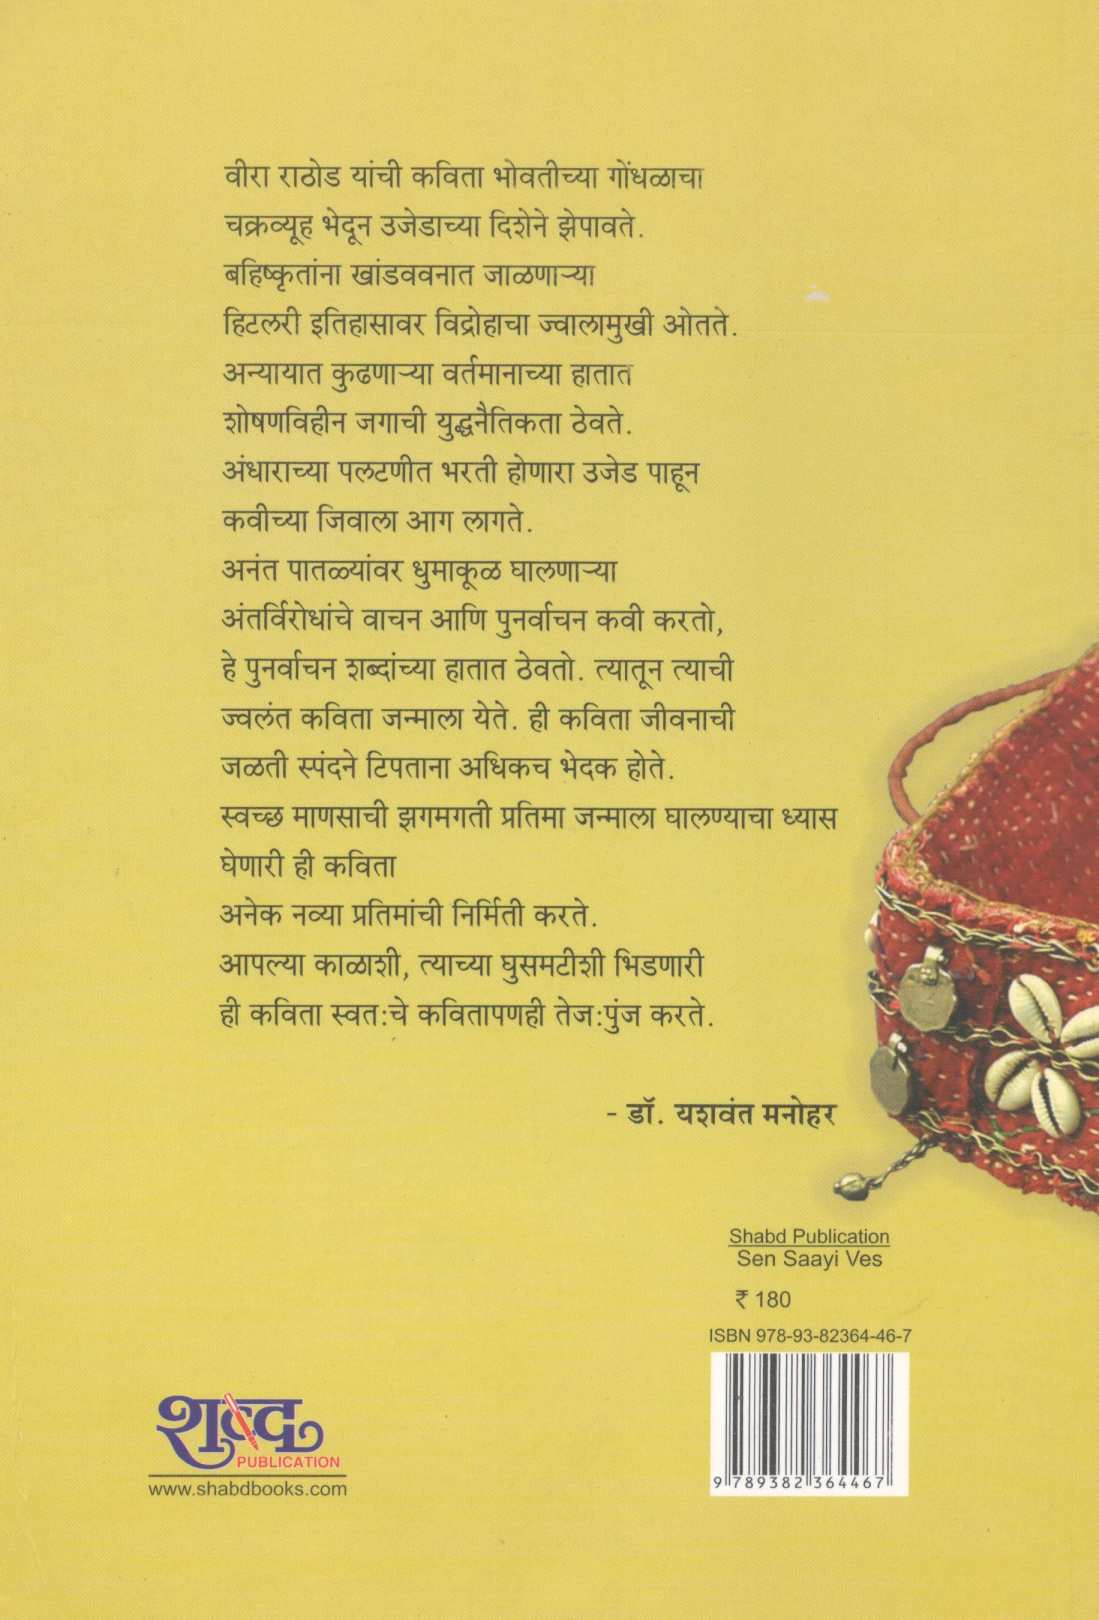 वीरा राठोड यांची कविता भोवतीच्या गोंधळाचा
चक्रव्यूह भेदून उजेडाच्या दिशेने झेपावते.
बहिष्कृतांना खांडववनात जाळणाऱ्या
हिटलरी इतिहासावर विद्रोहाचा ज्वालामुखी ओतते.
अन्यायात कुढणाऱ्या वर्तमानाच्या हातात
शोषणविहीन जगाची युद्धनैतिकता ठेवते.
अंधाराच्या पलटणीत भरती होणारा उजेड पाहून
कवीच्या जिवाला आग लागते.
अनंत पातळ्यांवर धुमाकूळ घालणाऱ्या
अंतर्विरोधांचे वाचन आणि पुनर्वाचन कवी करतो,
हे पुनर्वाचन शब्दांच्या हातात ठेवतो. त्यातून त्याची
ज्वलंत कविता जन्माला येते. ही कविता जीवनाची
जळती स्पंदने टिपताना अधिकच भेदक होते.
स्वच्छ माणसाची झगमगती प्रतिमा जन्माला घालण्याचा ध्यास
घेणारी ही कविता
अनेक नव्या प्रतिमांची निर्मिती करते.
आपल्या काळाशी, त्याच्या घुसमटीशी भिडणारी
ही कविता स्वत:चे कवितापणही तेज:पुंज करते.
- डॉ. यशवंत मनोहर
Shabd Publication
Sen Saayi Ves
₹ 180
ISBN 978-93-82364-46-7
9 789382 364467
शब्द
PUBLICATION
www.shabdbooks.com